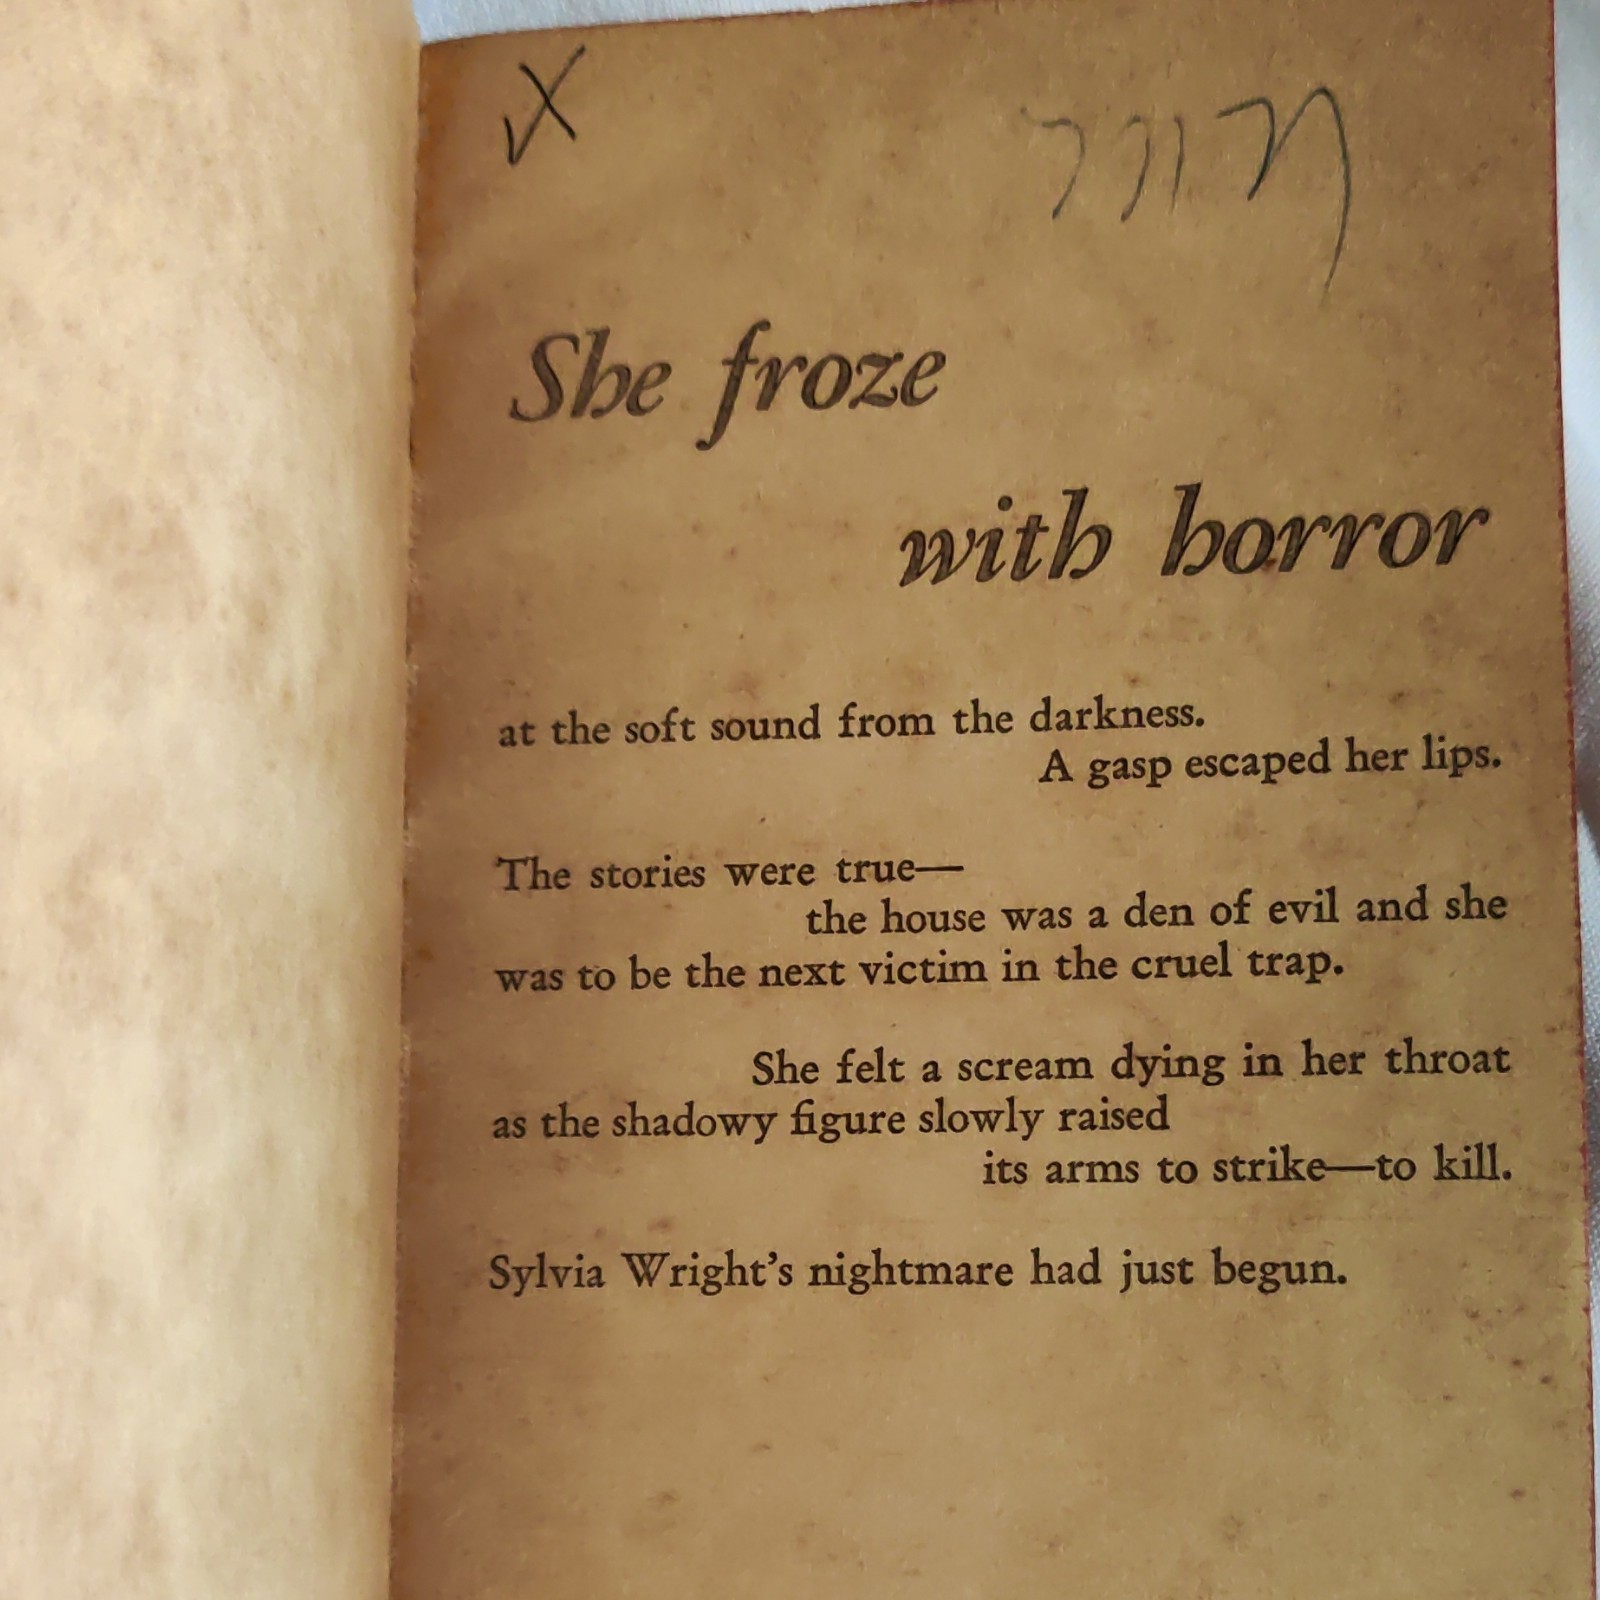 She froze
with horror
at the soft sound from the darkness.
A gasp escaped her lips.
The stories were true—
the house was a den of evil and she
was to be the next victim in the cruel trap.
She felt a scream dying in her throat
as the shadowy figure slowly raised
its arms to strike—to kill.
Sylvia Wright's nightmare had just begun.